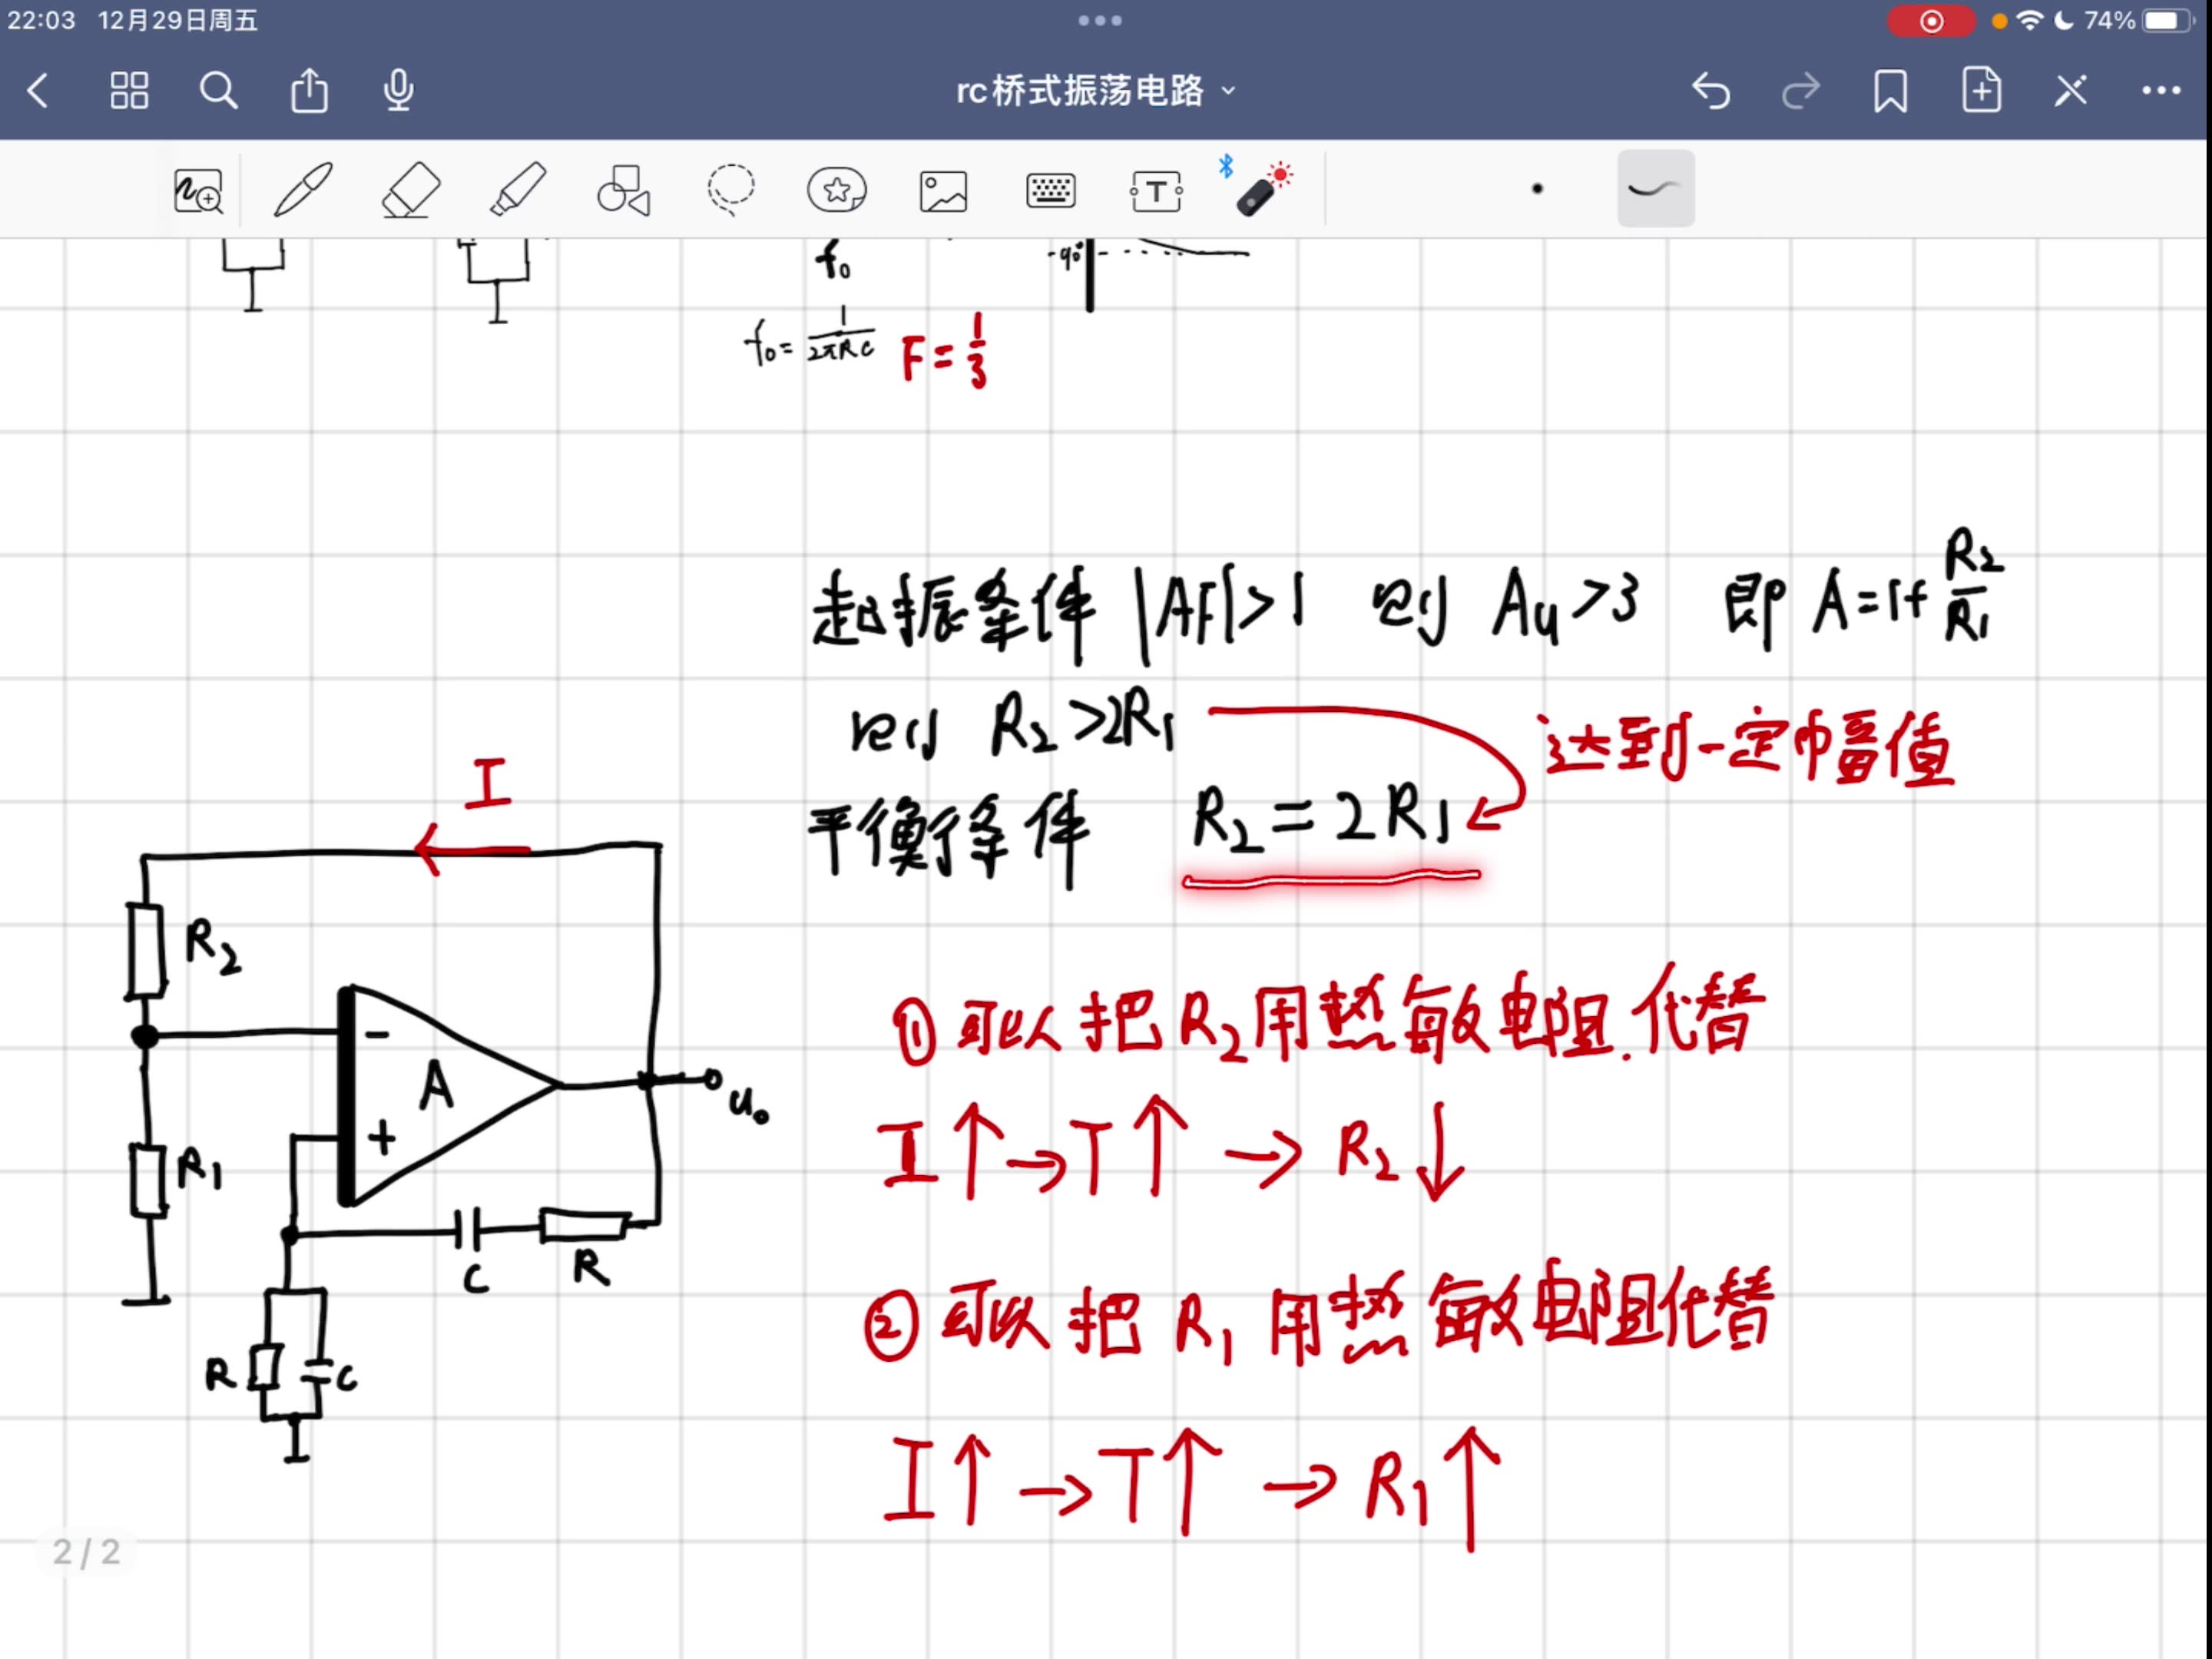 22:03 12月29日周五
74%
rc桥式振荡电路
T
f₀
-90°
f₀=1/2πRC F=1/3
起振条件 |AF|>1 则 Au>3 即 A=1+R₂/R₁
则 R₂>2R₁
达到一定幅值
平衡条件 R₂=2R₁
I
R₂
-
A
+
u₀
R₁
C
R
R
C
①可以把R₂用热敏电阻.代替
I↑→T↑→R₂↓
②可以把R₁用热敏电阻代替
I↑→T↑→R₁↑
2/2